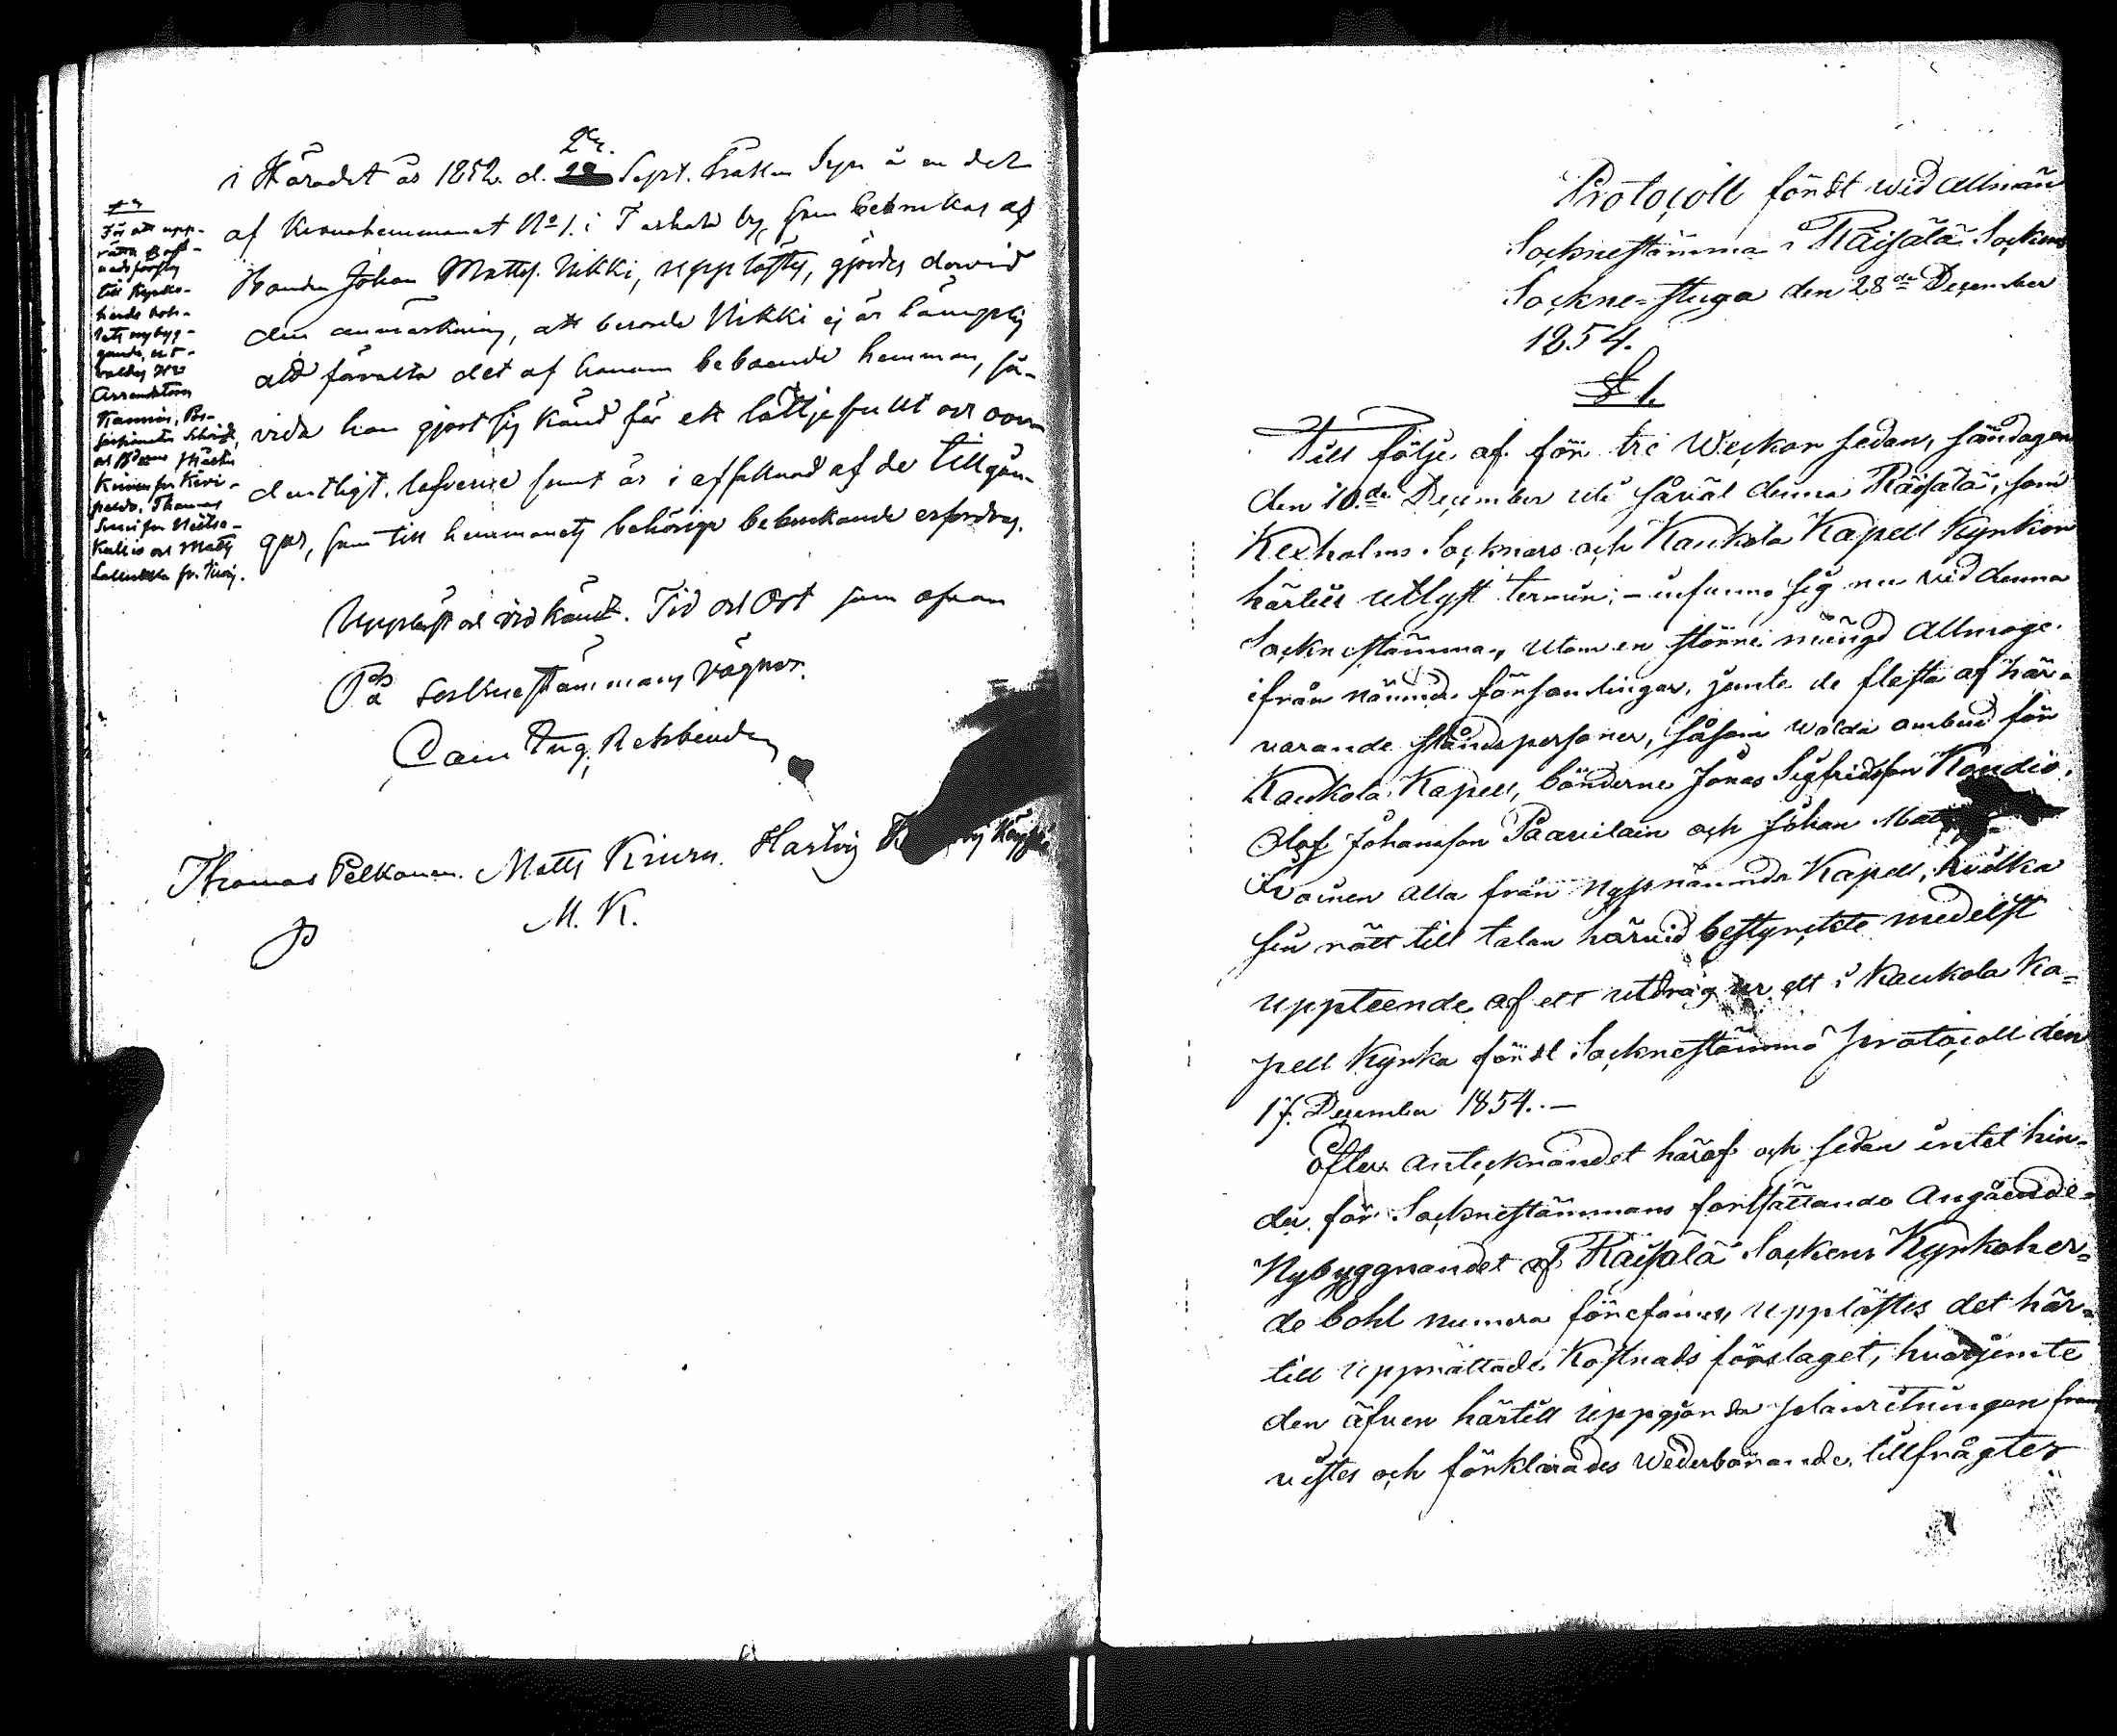 i Häradet år 1852. d. 22 Sept. Syn å en del
af Kronohemmanet No 1. i by, som bebrukas af
Bonden Johan Matts. Nikki, upplästes, gjordes dervid
den anmärkning, att berörde Nikki ej är lämplig
att förvalta det af honom beboende hemman, så-
vida han gjort sig känd för ett lättjefullt och oor-
dentligt lefverne samt är i afsaknad af de tillgån-
gar, som till hemmanets behöriga bebrukande erfordras.
Uppläst och vidkändt. Tid och Ort som ofvan
På Socknestämmans vägnar.
Carl Aug. Rehbinder
Thomas Pelkonen. Matts Kiuru. Hartvig
M. K.
För att upp-
rätta Kost-
nadsförslag
till Kyrko-
herde bols-
lets nybyg-
gande, ut-
valdes Hrr
Arrendatorn
Matts
Protocoll fördt wid allmän
Socknestämma i Räisälä Sockens
Sockne-stuga den 28de December
1854.
§ 1.
Till följe af för tre Weckor sedan, söndagen
den 10.de December uti såväl denna Räisälä, som
Kexholms Socknars och Kaukola Kapell Kyrkor
härtill utlyst termin; - infunno sig nu vid denna
Socknestämma, utom en större mängd Allmoge
ifrån nämnda församlingar, jemte de flesta af här-
varande ståndspersoner, såsom walda ombud för
Kaukola Kapell, bönderne Jonas Sigfridsson Kondio,
Olof Johansson Paavilain och Johan
Loinen alla från nyssnämnda Kapell, hvilka
sin rätt till talan härvid bestyrckte medelst
uppteende af ett utdrag ur ett i Kaukola Ka-
pell Kyrka fördt Socknestämmo protocoll den
17. December 1854. -
Efter antecknandet häraf och sedan intet hin-
der för Socknestämmans fortsättande Angående
Nybyggnandet af Räisälä Sockens Kyrkoher-
de bohl numera förefanns, upplästes det här-
till upprättade Kostnads förslaget, hvarjemte
den äfven härtill uppgjorda planritningen fram
vistes och förklarades Wederbörande, tillfrågtes